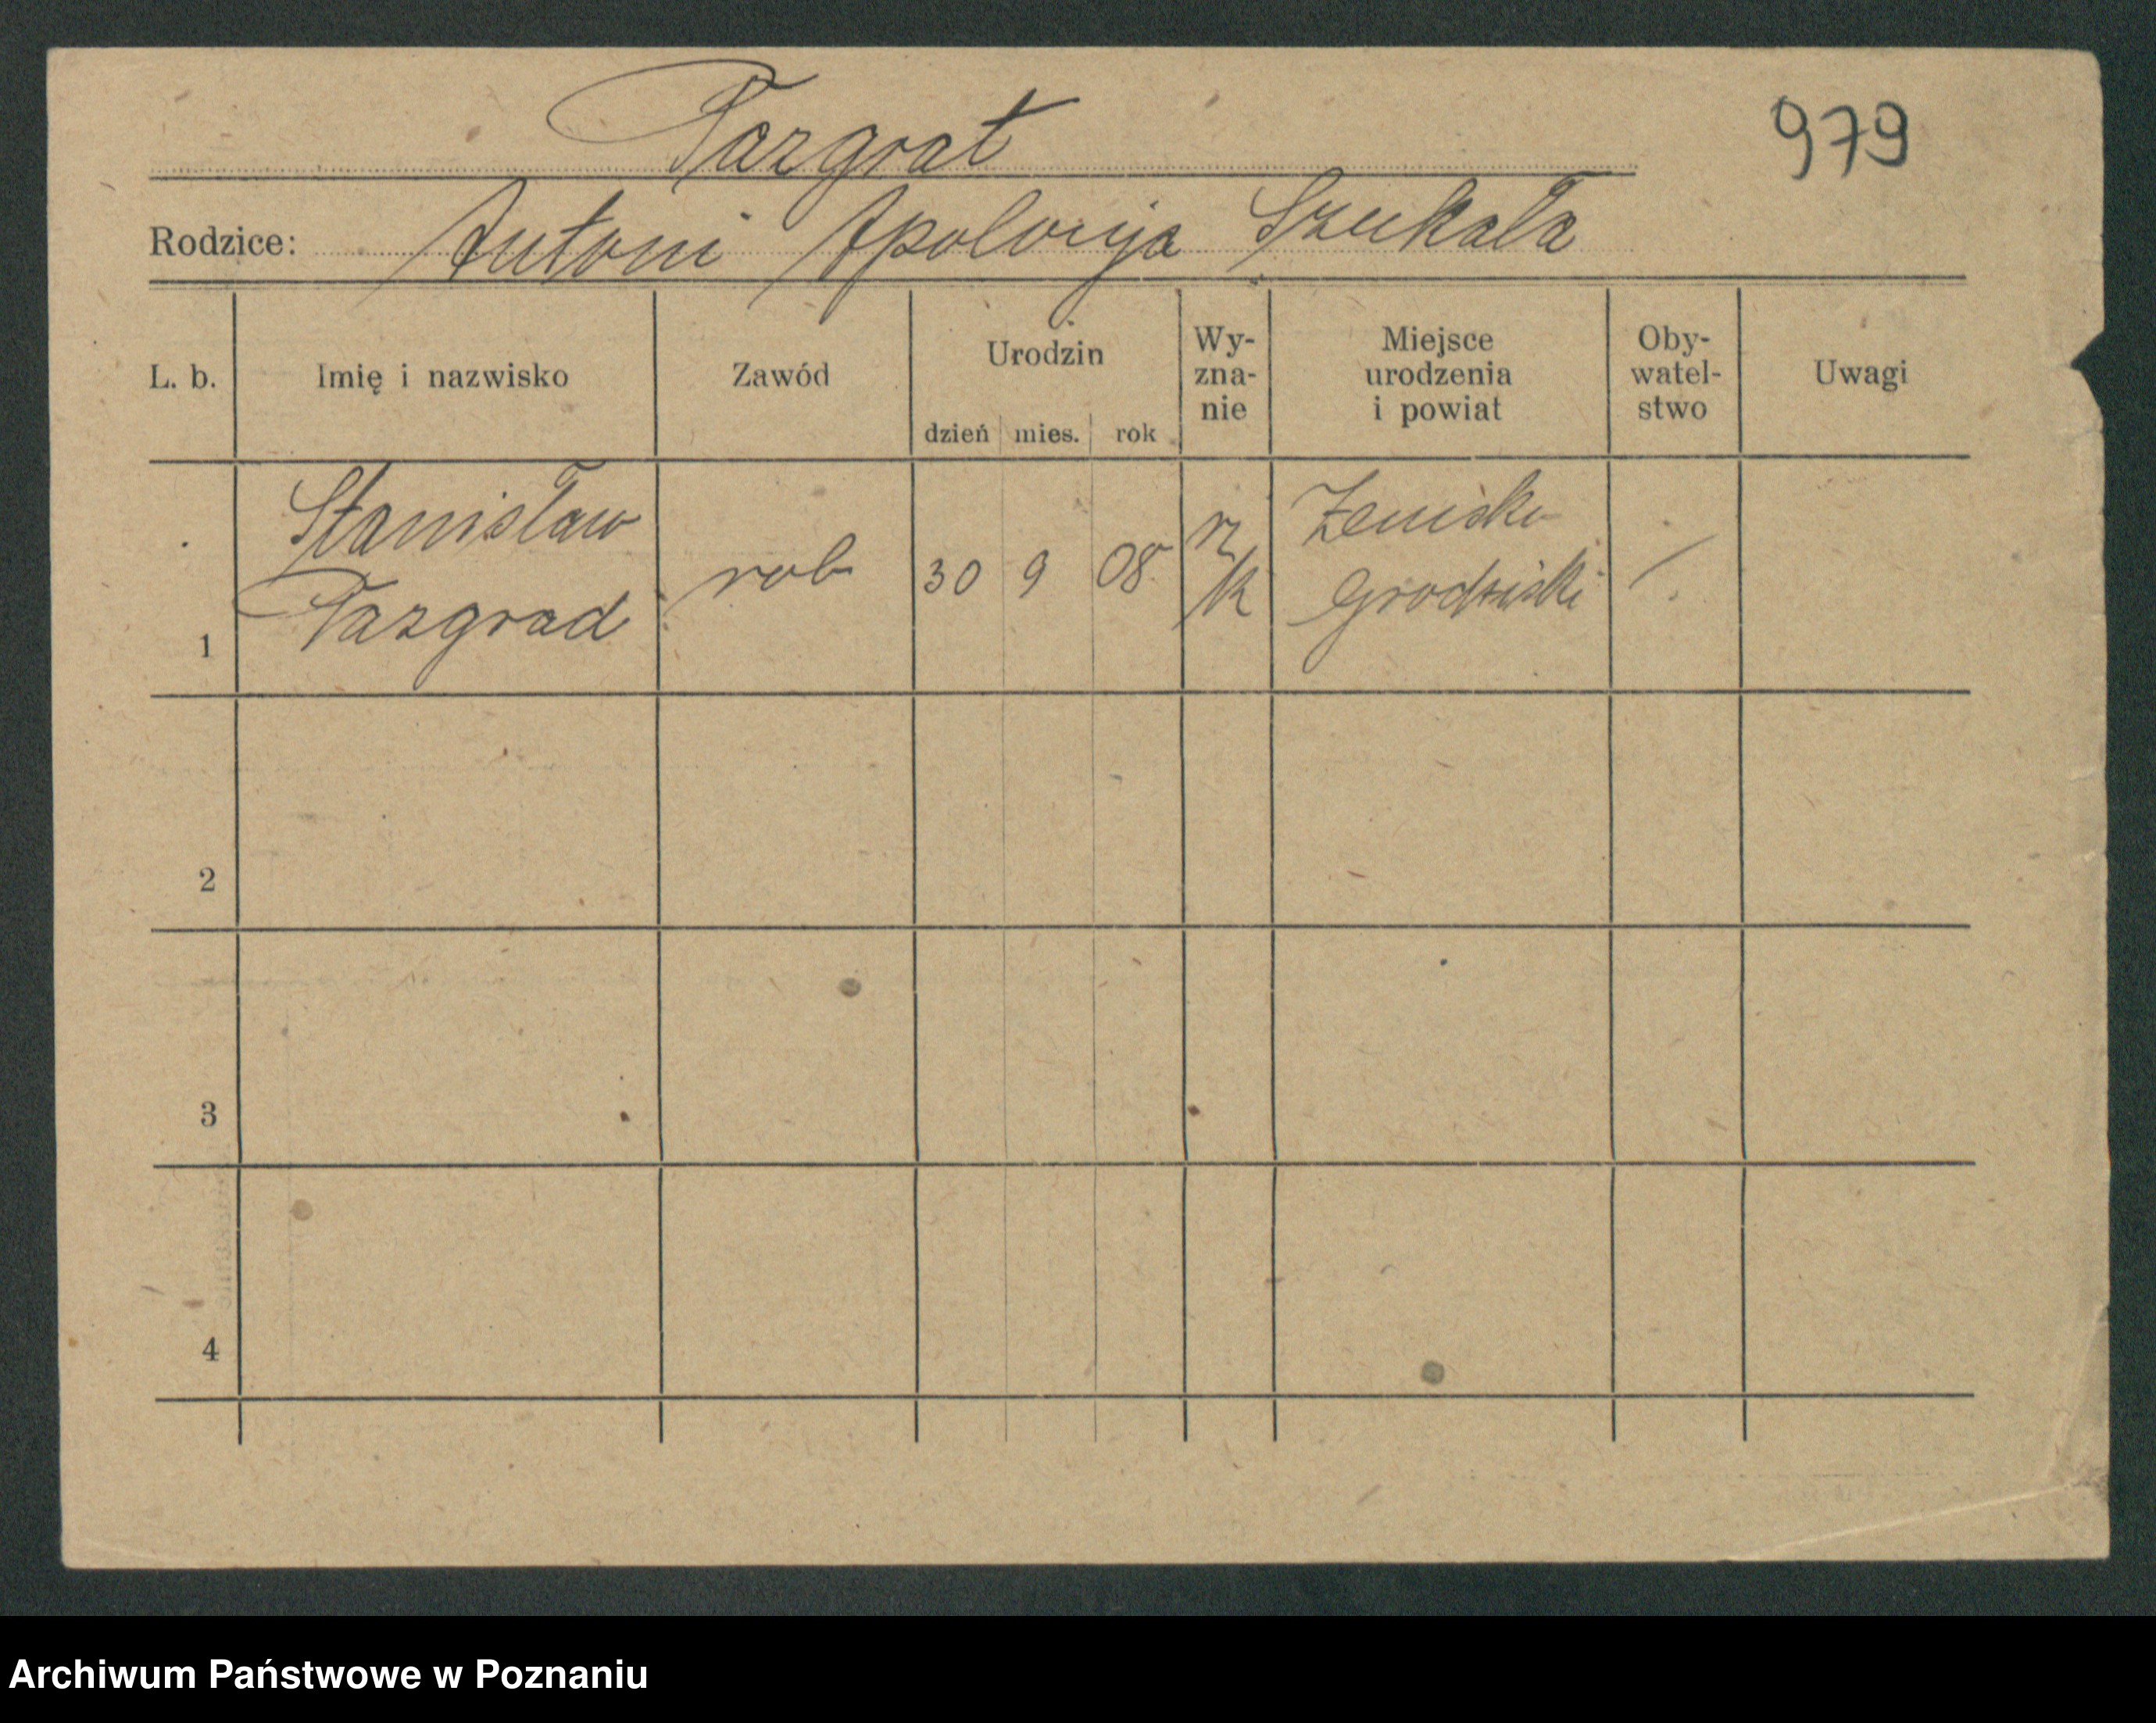 Pazgrat
979
Rodzice: Antoni Apolonja Szukała
L. b. Imię i nazwisko Zawód Urodzin dzień mies. rok Wy-zna-nie Miejsce urodzenia i powiat Oby-watel-stwo Uwagi
Stanisław
Pazgrad
1 rob 30 9 08 rz
k
Grodziski
2
3
4
Archiwum Państwowe w Poznaniu